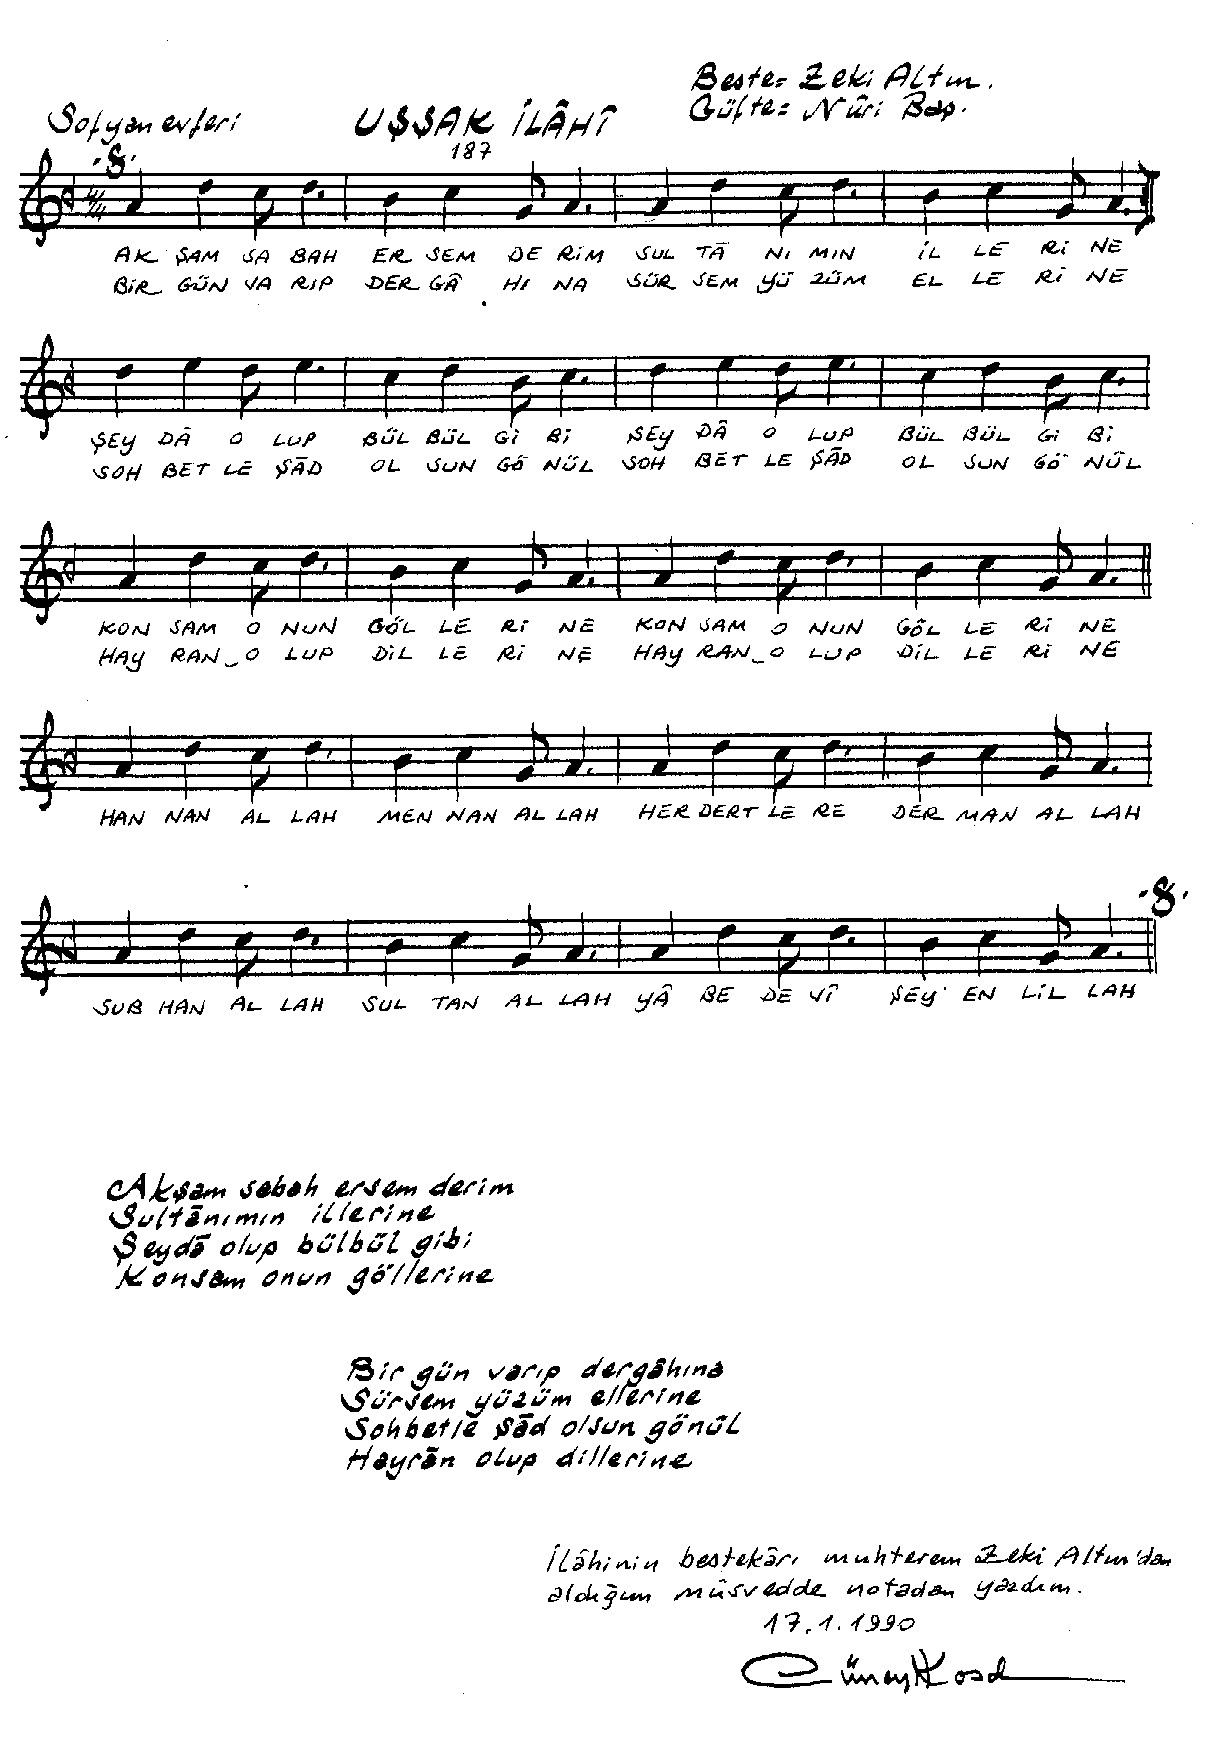 Beste= Zeki Altın.
Güfte= Nûri Baş.
Sofyan evferi
UŞŞAK İLÂHÎ
187
4/4
AK ŞAM SA BAH ER SEM DE RİM SUL TÂ NI MIN İL LE Rİ NE
BİR GÜN VA RIP DER GÂ HI NA SÜR SEM YÜ ZÜM EL LE Rİ NE
ŞEY DÂ O LUP BÜL BÜL Gİ Bİ ŞEY DÂ O LUP BÜL BÜL Gİ Bİ
SOH BET LE ŞÂD OL SUN GÖ NÜL SOH BET LE ŞÂD OL SUN GÖ NÜL
KON SAM O NUN GÖL LE Rİ NE KON SAM O NUN GÖL LE Rİ NE
HAY RAN_O LUP DİL LE Rİ NE HAY RAN_O LUP DİL LE Rİ NE
HAN NAN AL LAH MEN NAN AL LAH HER DERT LE RE DER MAN AL LAH
SUB HAN AL LAH SUL TAN AL LAH YÂ BE DE VÎ ŞEY' EN LİL LAH
Akşam sabah ersem derim
Sultânımın illerine
Şeydâ olup bülbül gibi
Konsam onun göllerine
Bir gün varıp dergâhına
Sürsem yüzüm ellerine
Sohbetle şâd olsun gönül
Hayrân olup dillerine
İlâhinin bestekârı muhterem Zeki Altın'dan
aldığım müsvedde notadan yazdım.
17.1.1990